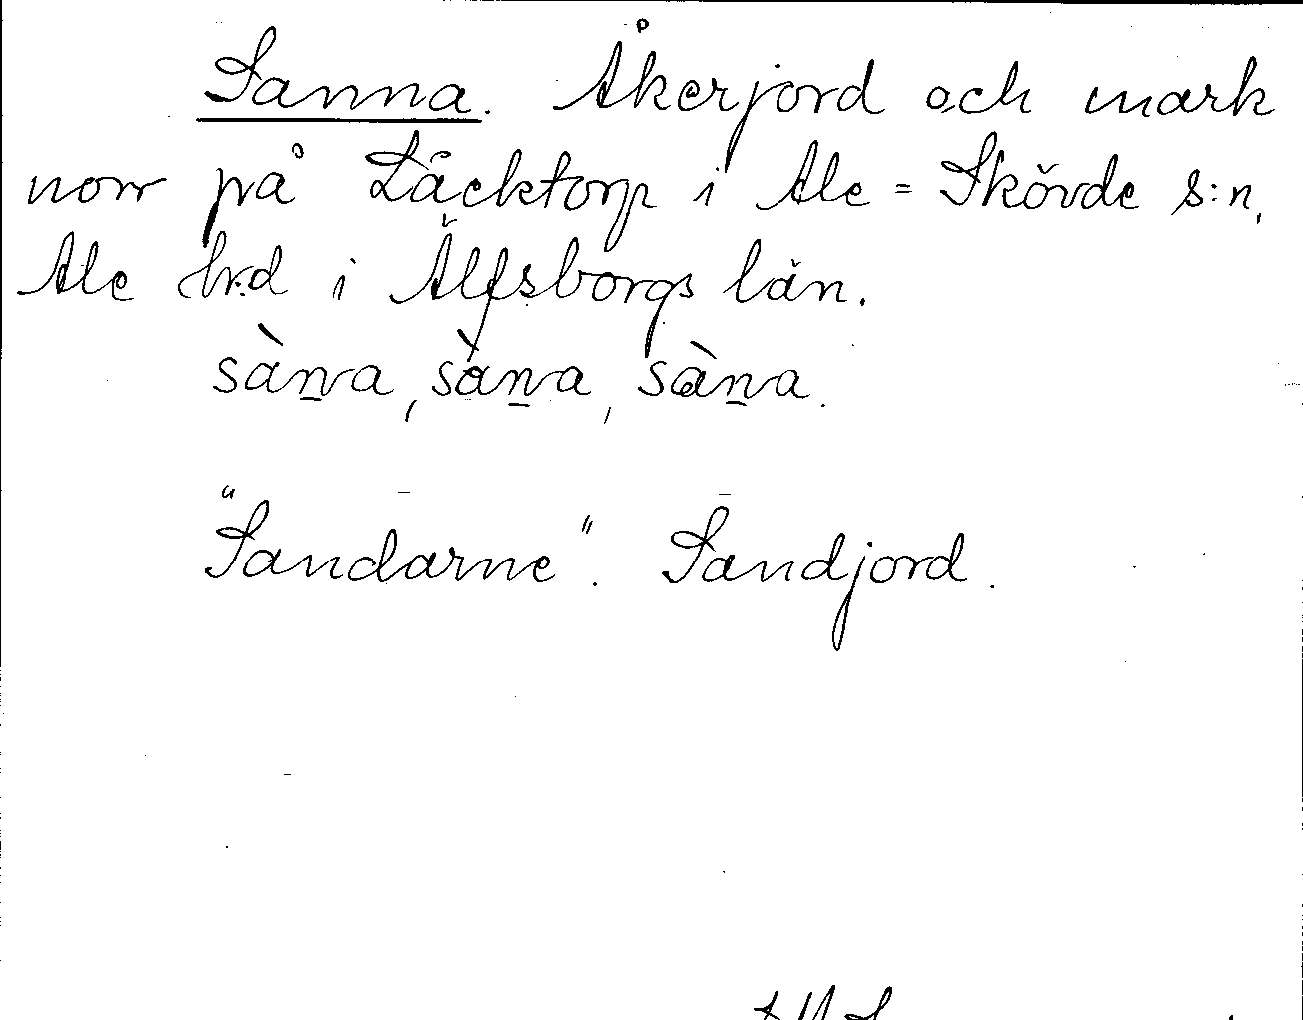 Sanna. Åkerjord och mark
norr på Läcktorp i Ale = Skövde s:n,
Ale hrd i Älfsborgs län.
sàn̲a, sàn̲a, sàn̲a.
"Sandarne". Sandjord.